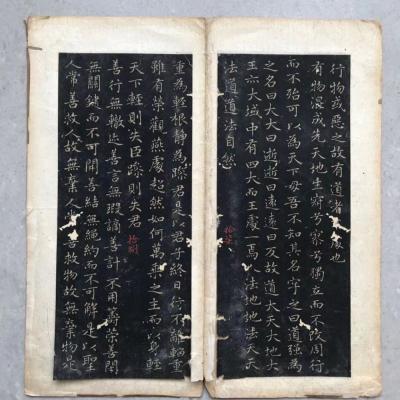 行物或惡之故有道者處也
有物混成先天地生寂兮寥兮獨立而不改周行
而不殆可以為天下母吾不知其名字之曰道強為
之名曰大大曰逝逝曰遠遠曰反故道大天大地大
王亦大域中有四大而王處一焉人法地地法天天
法道道法自然
拾柒
重為輕根靜為躁君是以君子終日行不離輜重
雖有榮觀燕處超然如何萬乘之主而以身輕
天下輕則失臣躁則失君
拾捌
善行無轍迹善言無瑕謫善計不用籌策善閉
無關鍵而不可開善結無繩約而不可解是以聖
人常善救人故無棄人常善救物故無棄物是